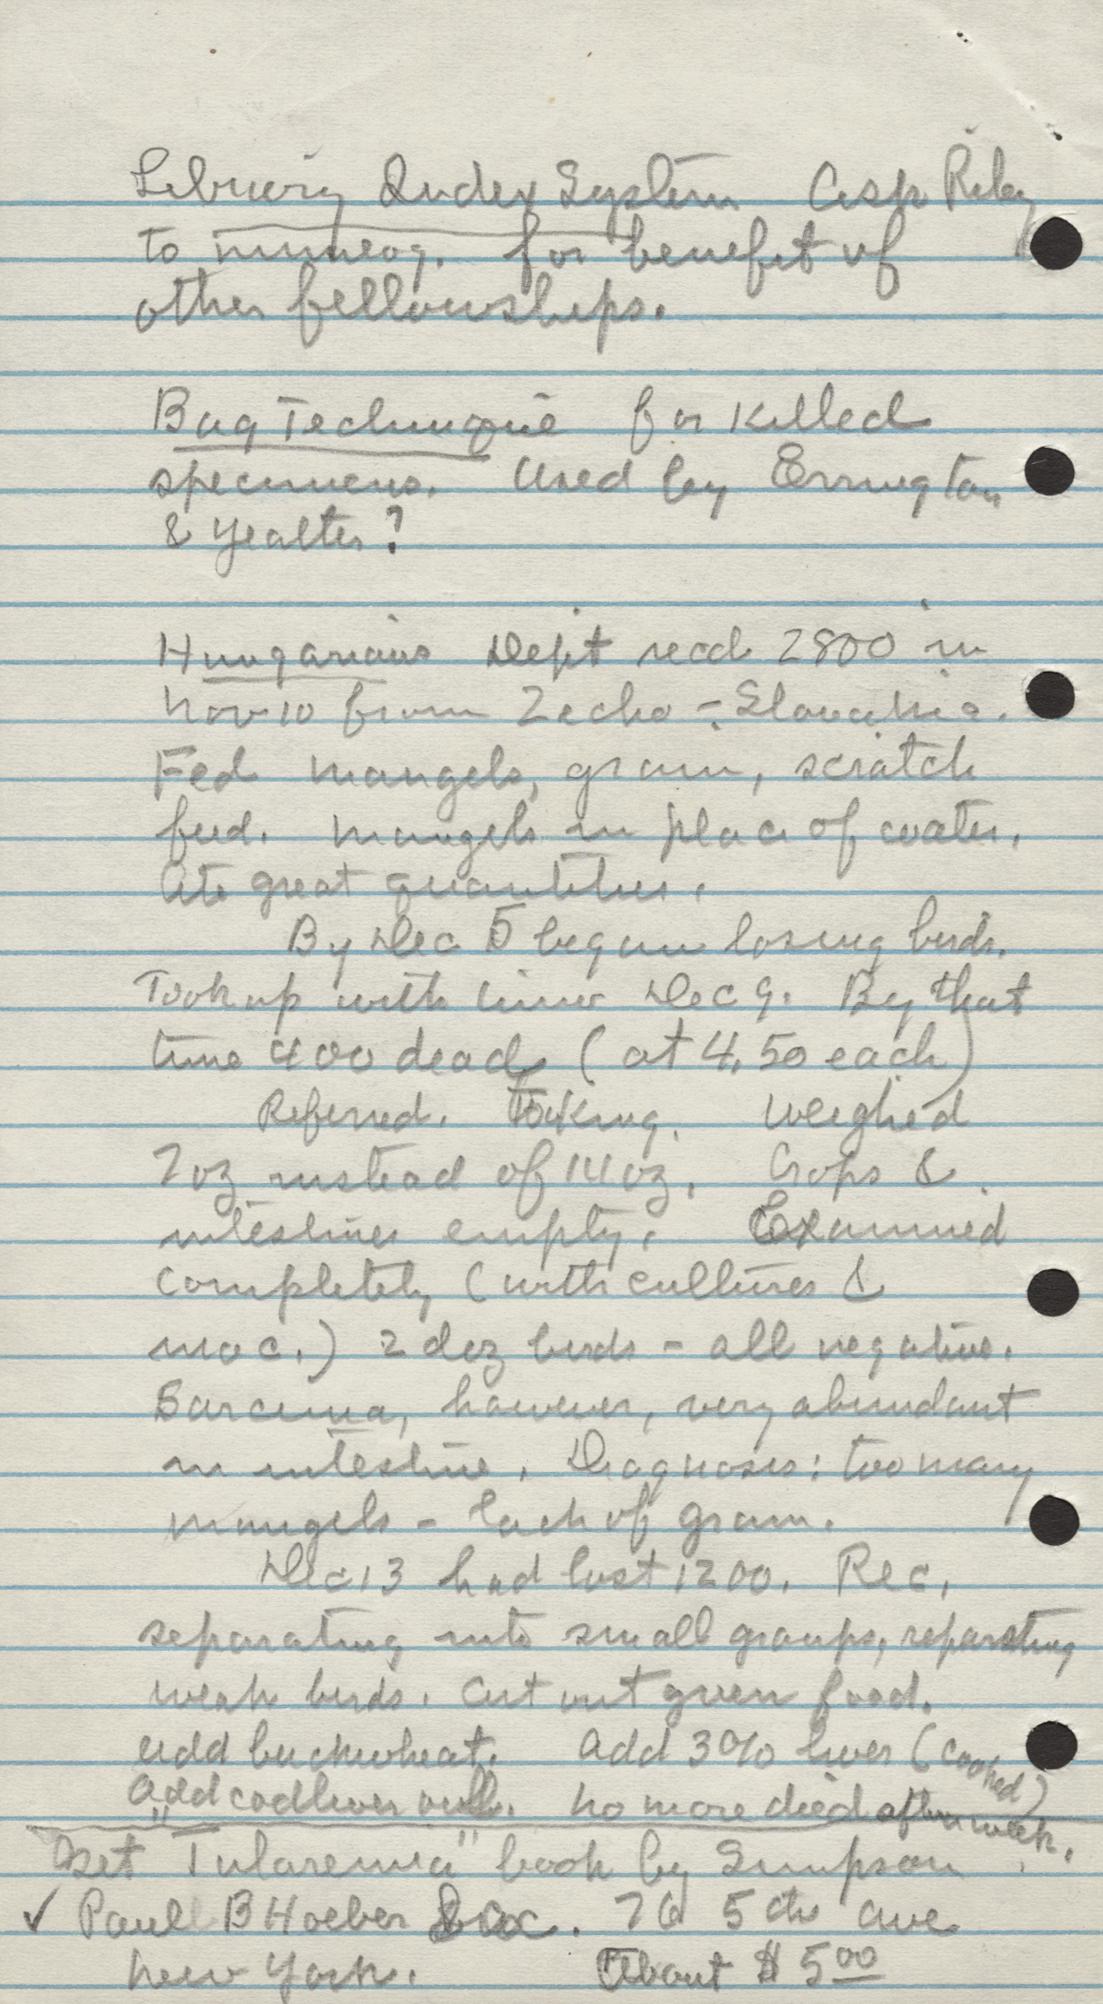 Library Index System Ask Riley
to mimeog. for benefit of
other fellowships.
Bag Technique for killed
specimens. Used by Errington
& Yeatter?
Hungarians Dept recd 2800 in
Nov 10 from Zecho-Slovakia.
Fed mangels, grain, scratch
feed. Mangels in place of water.
Ate great quantities.
By Dec 5 began losing birds.
Took up with Dec 9. By that
time 400 dead (at 4.50 each)
Referred. Weighed
7 oz instead of 14 oz. Crops &
intestines empty. Examined
completely (with cultures &
) 2 doz birds - all negative.
Sarcina, however, very abundant
in intestine. Diagnosis: too many
mangels - lack of grain.
Dec 13 had lost 1200. Rec.
separating into small groups, separating
weak birds. Cut out green food.
add buckwheat. Add 3% liver (cooked)
Add codliver oil. No more died after week.
Get "Tularemia" book by Simpson
✓ Paul B Hoeber Inc. 76 5th Ave
New York. About $5.00